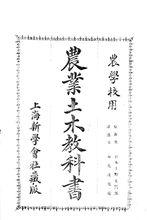 農學校用
農業土木教科書
上海新學會社藏版